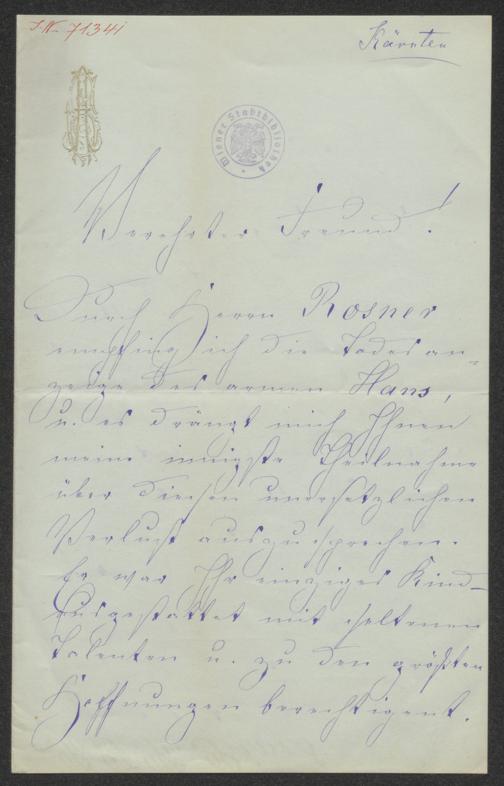 J.N. 71341
Kärnten
Wiener Stadtbibliothek
Verehrter Freund!
Durch Herrn Rosner
empfing ich die Todesan-
zeige des armen Hans,
u. es drängt mich Ihnen
meine innigste Theilnahme
über diesen unersetzlichen
Verlust auszusprechen.
Er war Ihr einziges Kind –
ausgestattet mit seltenen
Talenten u. zu den größten
Hoffnungen berechtigent.